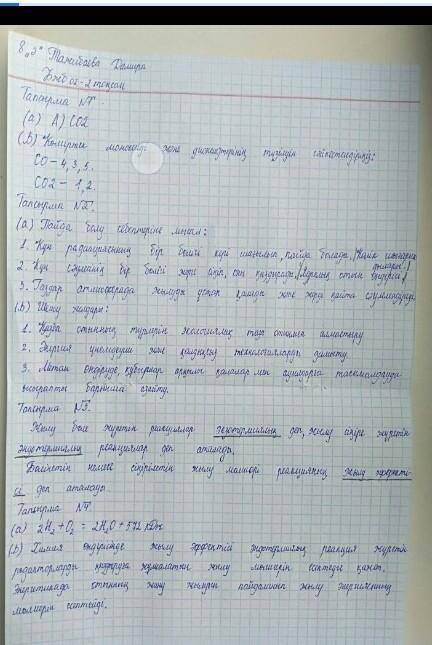 8 "Э" Тажибаева Дилира
БЖБ 02-2 тоқсан
Тапсырма №1
(а) А) СО2
(В) Көміртек моноксиді және диоксидтерінің түзілуін сәйкестендіріңіз:
СО – 4, 3, 5.
СО2 – 1, 2.
Тапсырма №2.
(а) Пайда болу себептеріне мысал:
1. Күн радиациясының бір бөлігі кері шағылып, пайда болады.
2. Күн сәулесінің бір бөлігі жерге өтіп, сол қыздырады.
3. Газдар атмосферада жылуды ұстап қалады және жерге қайта сәулелендіреді
(В) Шешу жолдары:
1. Қазба отынның түрлерін экологиялық таза отынға алмастыру
2. Энергия үнемдеуші және қалдықсыз технологияларды дамыту.
3. Метан өндіруде, құбырлар арқылы қалалар мен ауылдарға тасымалдауда
ысырапты барынша азайту.
Тапсырма №3.
Жылу бөле жүретін реакциялар экзотермиялық деп, жылу сіңіре жүретін
эндотермиялық реакциялар деп аталады.
Бөлінетін немесе сіңірілетін жылу мөлшері реакцияның жылу эффекті-
сі деп аталады.
Тапсырма №4
(а) 2H2 + O2 = 2H2O + 572 кДж
(В) Химия өндірісінде жылу эффектісі эндотермиялық реакция жүретін
реакторларды қыздыруға жұмсалатын жылу мөлшерін есептеуге қажет.
Энергетикада отынның жану жылуын пайдаланып жылу энергиясының
мөлшерін есептейді.